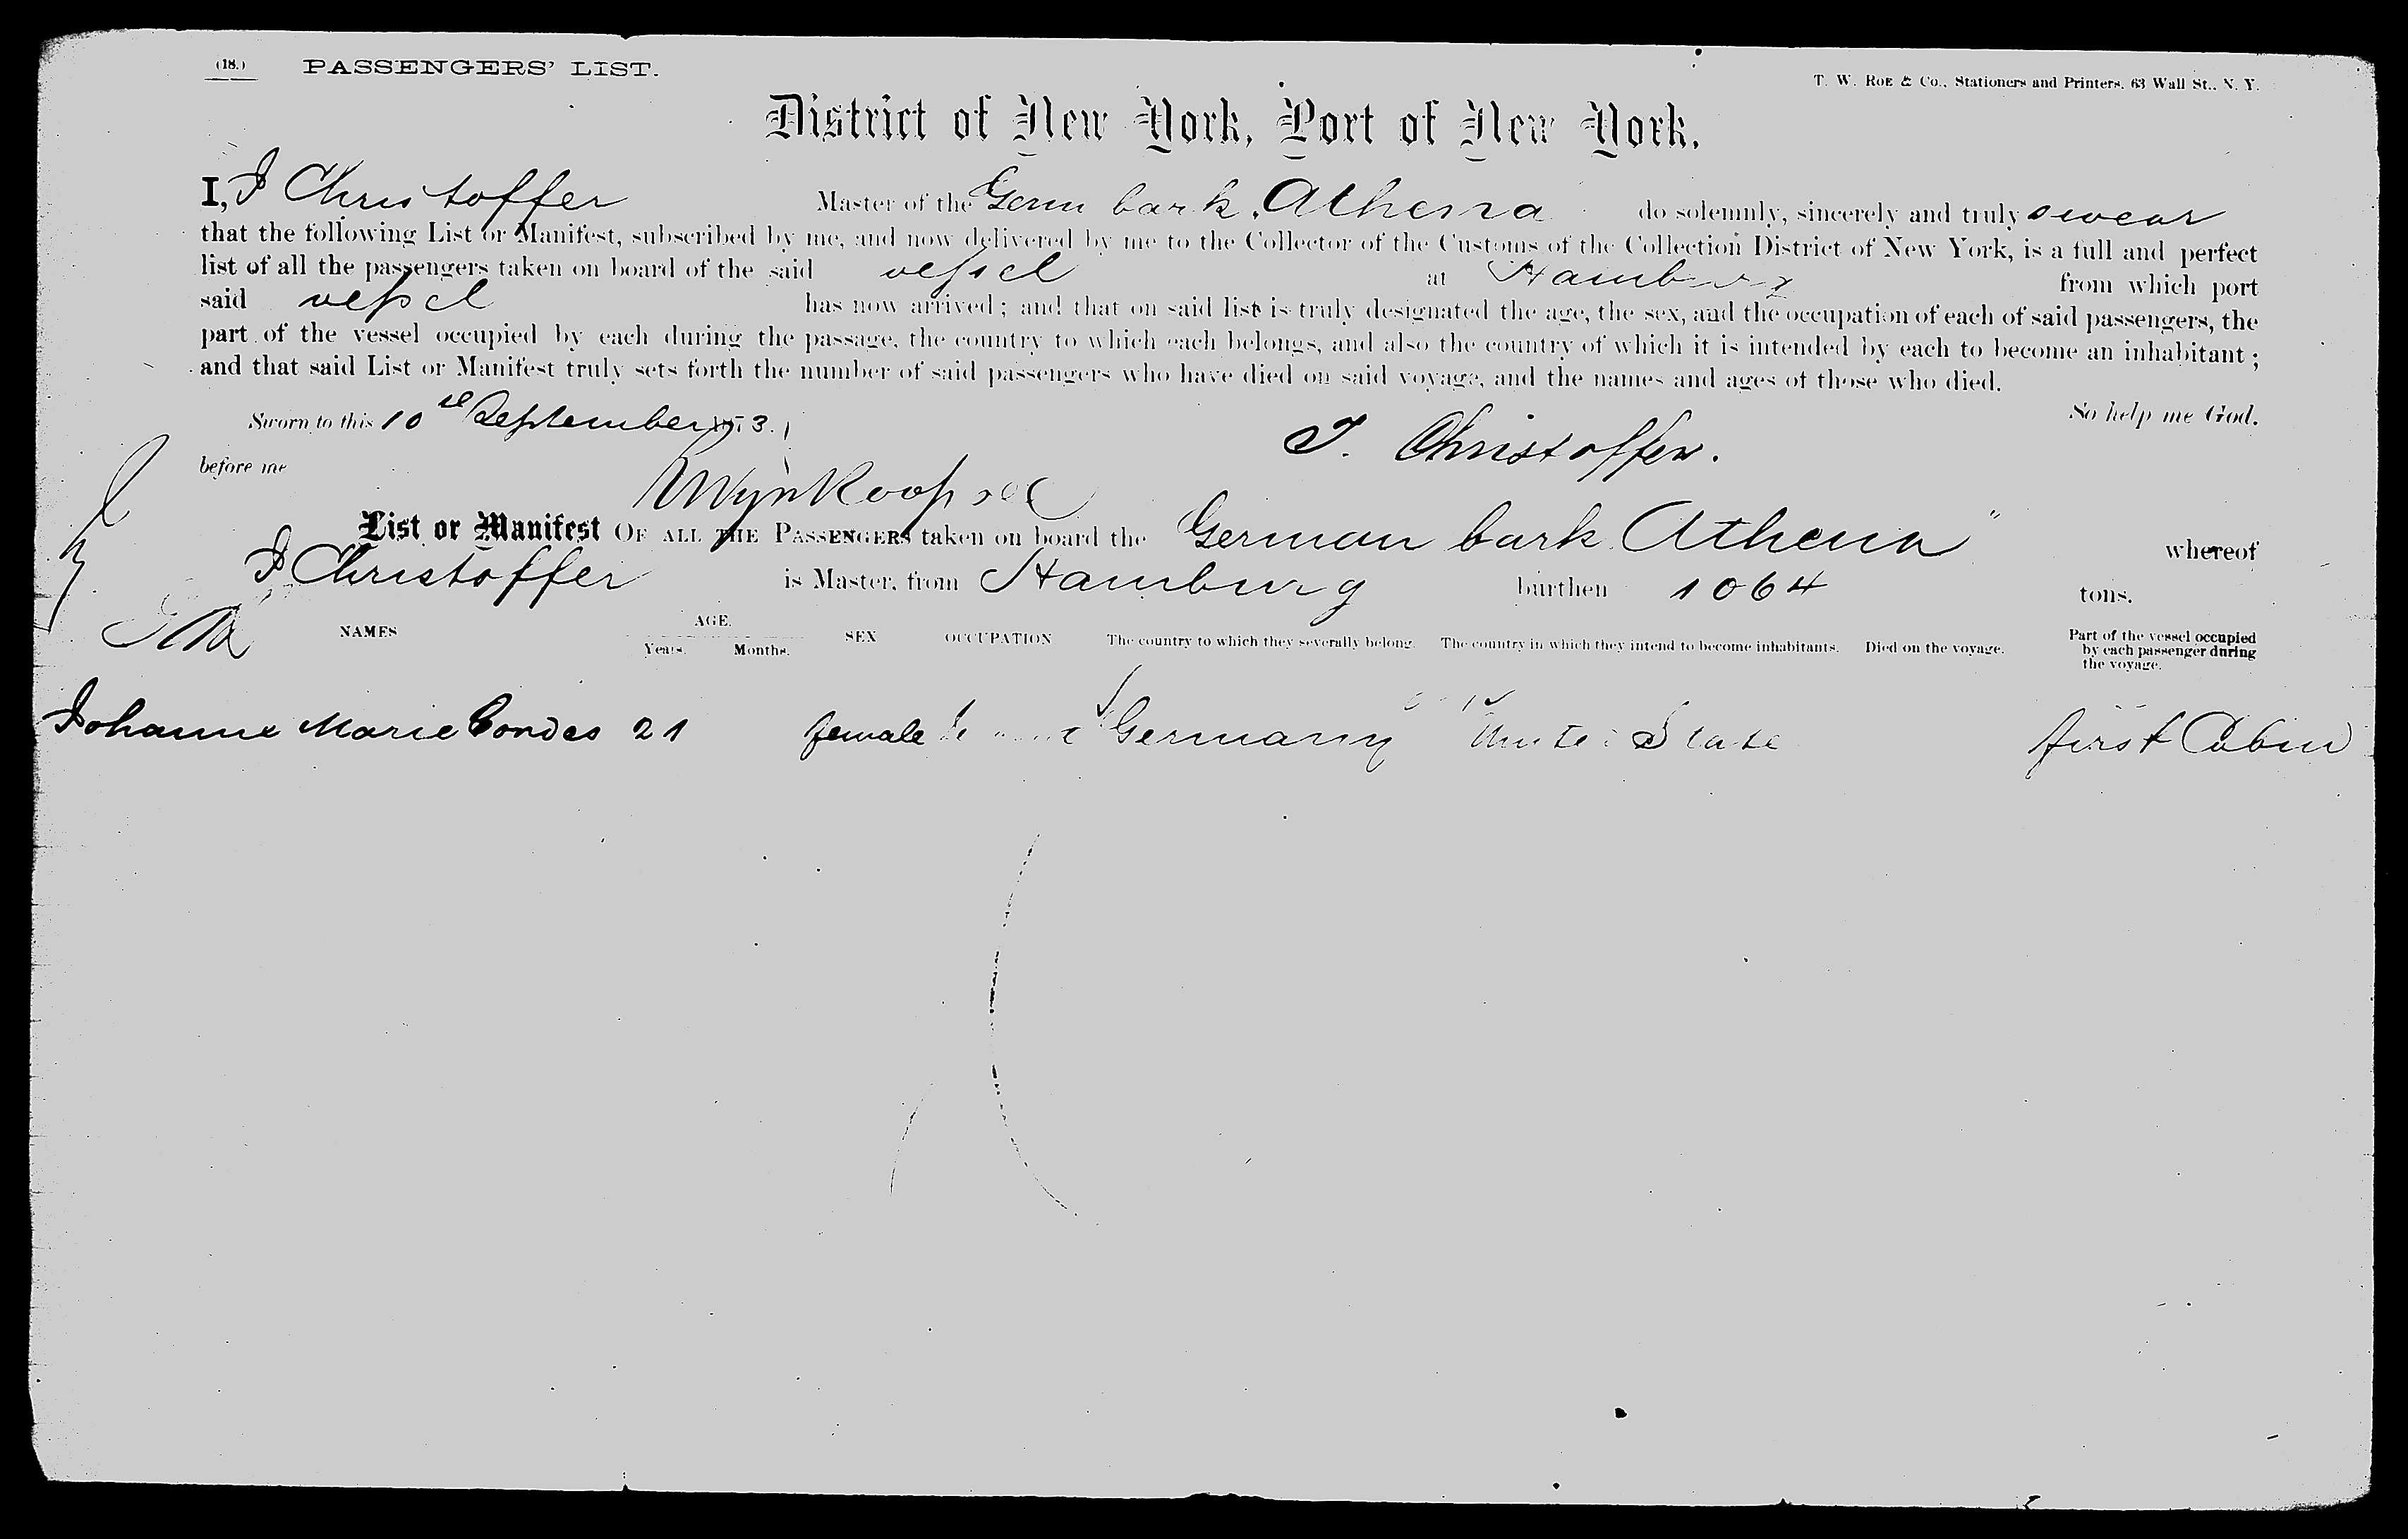 (18.) PASSENGERS' LIST.
T. W. ROE & Co., Stationers and Printers, 63 Wall St., N. Y.
District of New York, Port of New York.
I, J Christoffer Master of the Germ bark. Athena do solemnly, sincerely and truly swear
that the following List or Manifest, subscribed by me, and now delivered by me to the Collector of the Customs of the Collection District of New York, is a full and perfect
list of all the passengers taken on board of the said vessel at Hamburg from which port
said vessel has now arrived; and that on said list is truly designated the age, the sex, and the occupation of each of said passengers, the
part of the vessel occupied by each during the passage, the country to which each belongs, and also the country of which it is intended by each to become an inhabitant;
and that said List or Manifest truly sets forth the number of said passengers who have died on said voyage, and the names and ages of those who died.
So help me God.
Sworn to this 10 September 1873.
J. Christoffer.
before me
Wynkoop
List or Manifest OF ALL THE PASSENGERS taken on board the German bark Athena" whereof
J Christoffer is Master, from Hamburg burthen 1064 tons.
NAMES AGE. Years. Months. SEX OCCUPATION The country to which they severally belong. The country in which they intend to become inhabitants. Died on the voyage. Part of the vessel occupied by each passenger during the voyage.
Johanne Marie Cordes 21 female Germany United State first Cabin